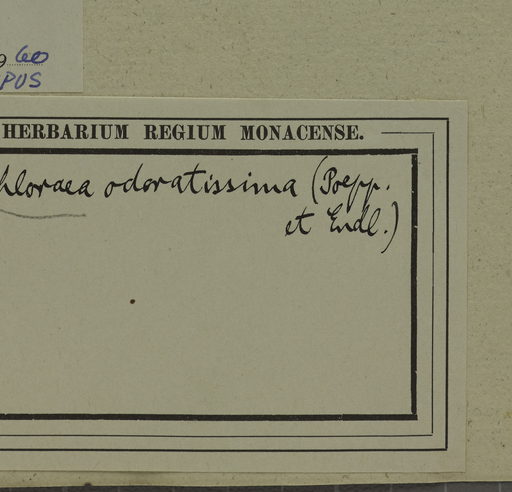 9 60
PUS
HERBARIUM REGIUM MONACENSE.
hloraea odoratissima (Poepp.
et Endl.)